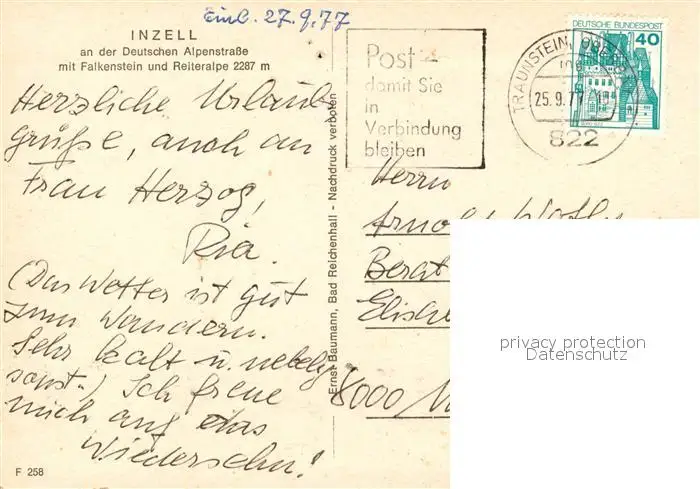 Einl. 27.9.77
INZELL
an der Deutschen Alpenstraße
mit Falkenstein und Reiteralpe 2287 m
Herzliche Urlaubs
grüße, auch an
Frau Herzog,
Ria.
(Das Wetter ist gut
zum Wandern.
Sehr kalt u. nebelig
sonst.) Ich freue
mich auf das
Wiedersehn!
F 258
Ernst Baumann, Bad Reichenhall - Nachdruck verboten
Post -
damit Sie
in
Verbindung
bleiben
TRAUNSTEIN, OBERBAY
25.9.77
822
DEUTSCHE BUNDESPOST
40
Herrn
Arno
Berat
Elische
8000 M
privacy protection
Datenschutz